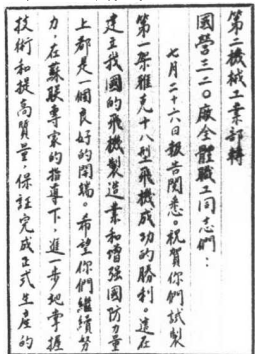 第二機械工業部轉
國營三二〇廠全體職工同志們：
七月二十六日報告閱悉。祝賀你們試製
第一架雅克十八型飛機成功的勝利。這在
建立我國的飛機製造業和增强國防力量
上都是一個良好的開端。希望你們繼續努
力，在蘇联專家的指導下，進一步地掌握
技術和提高質量，保証完成正式生產的